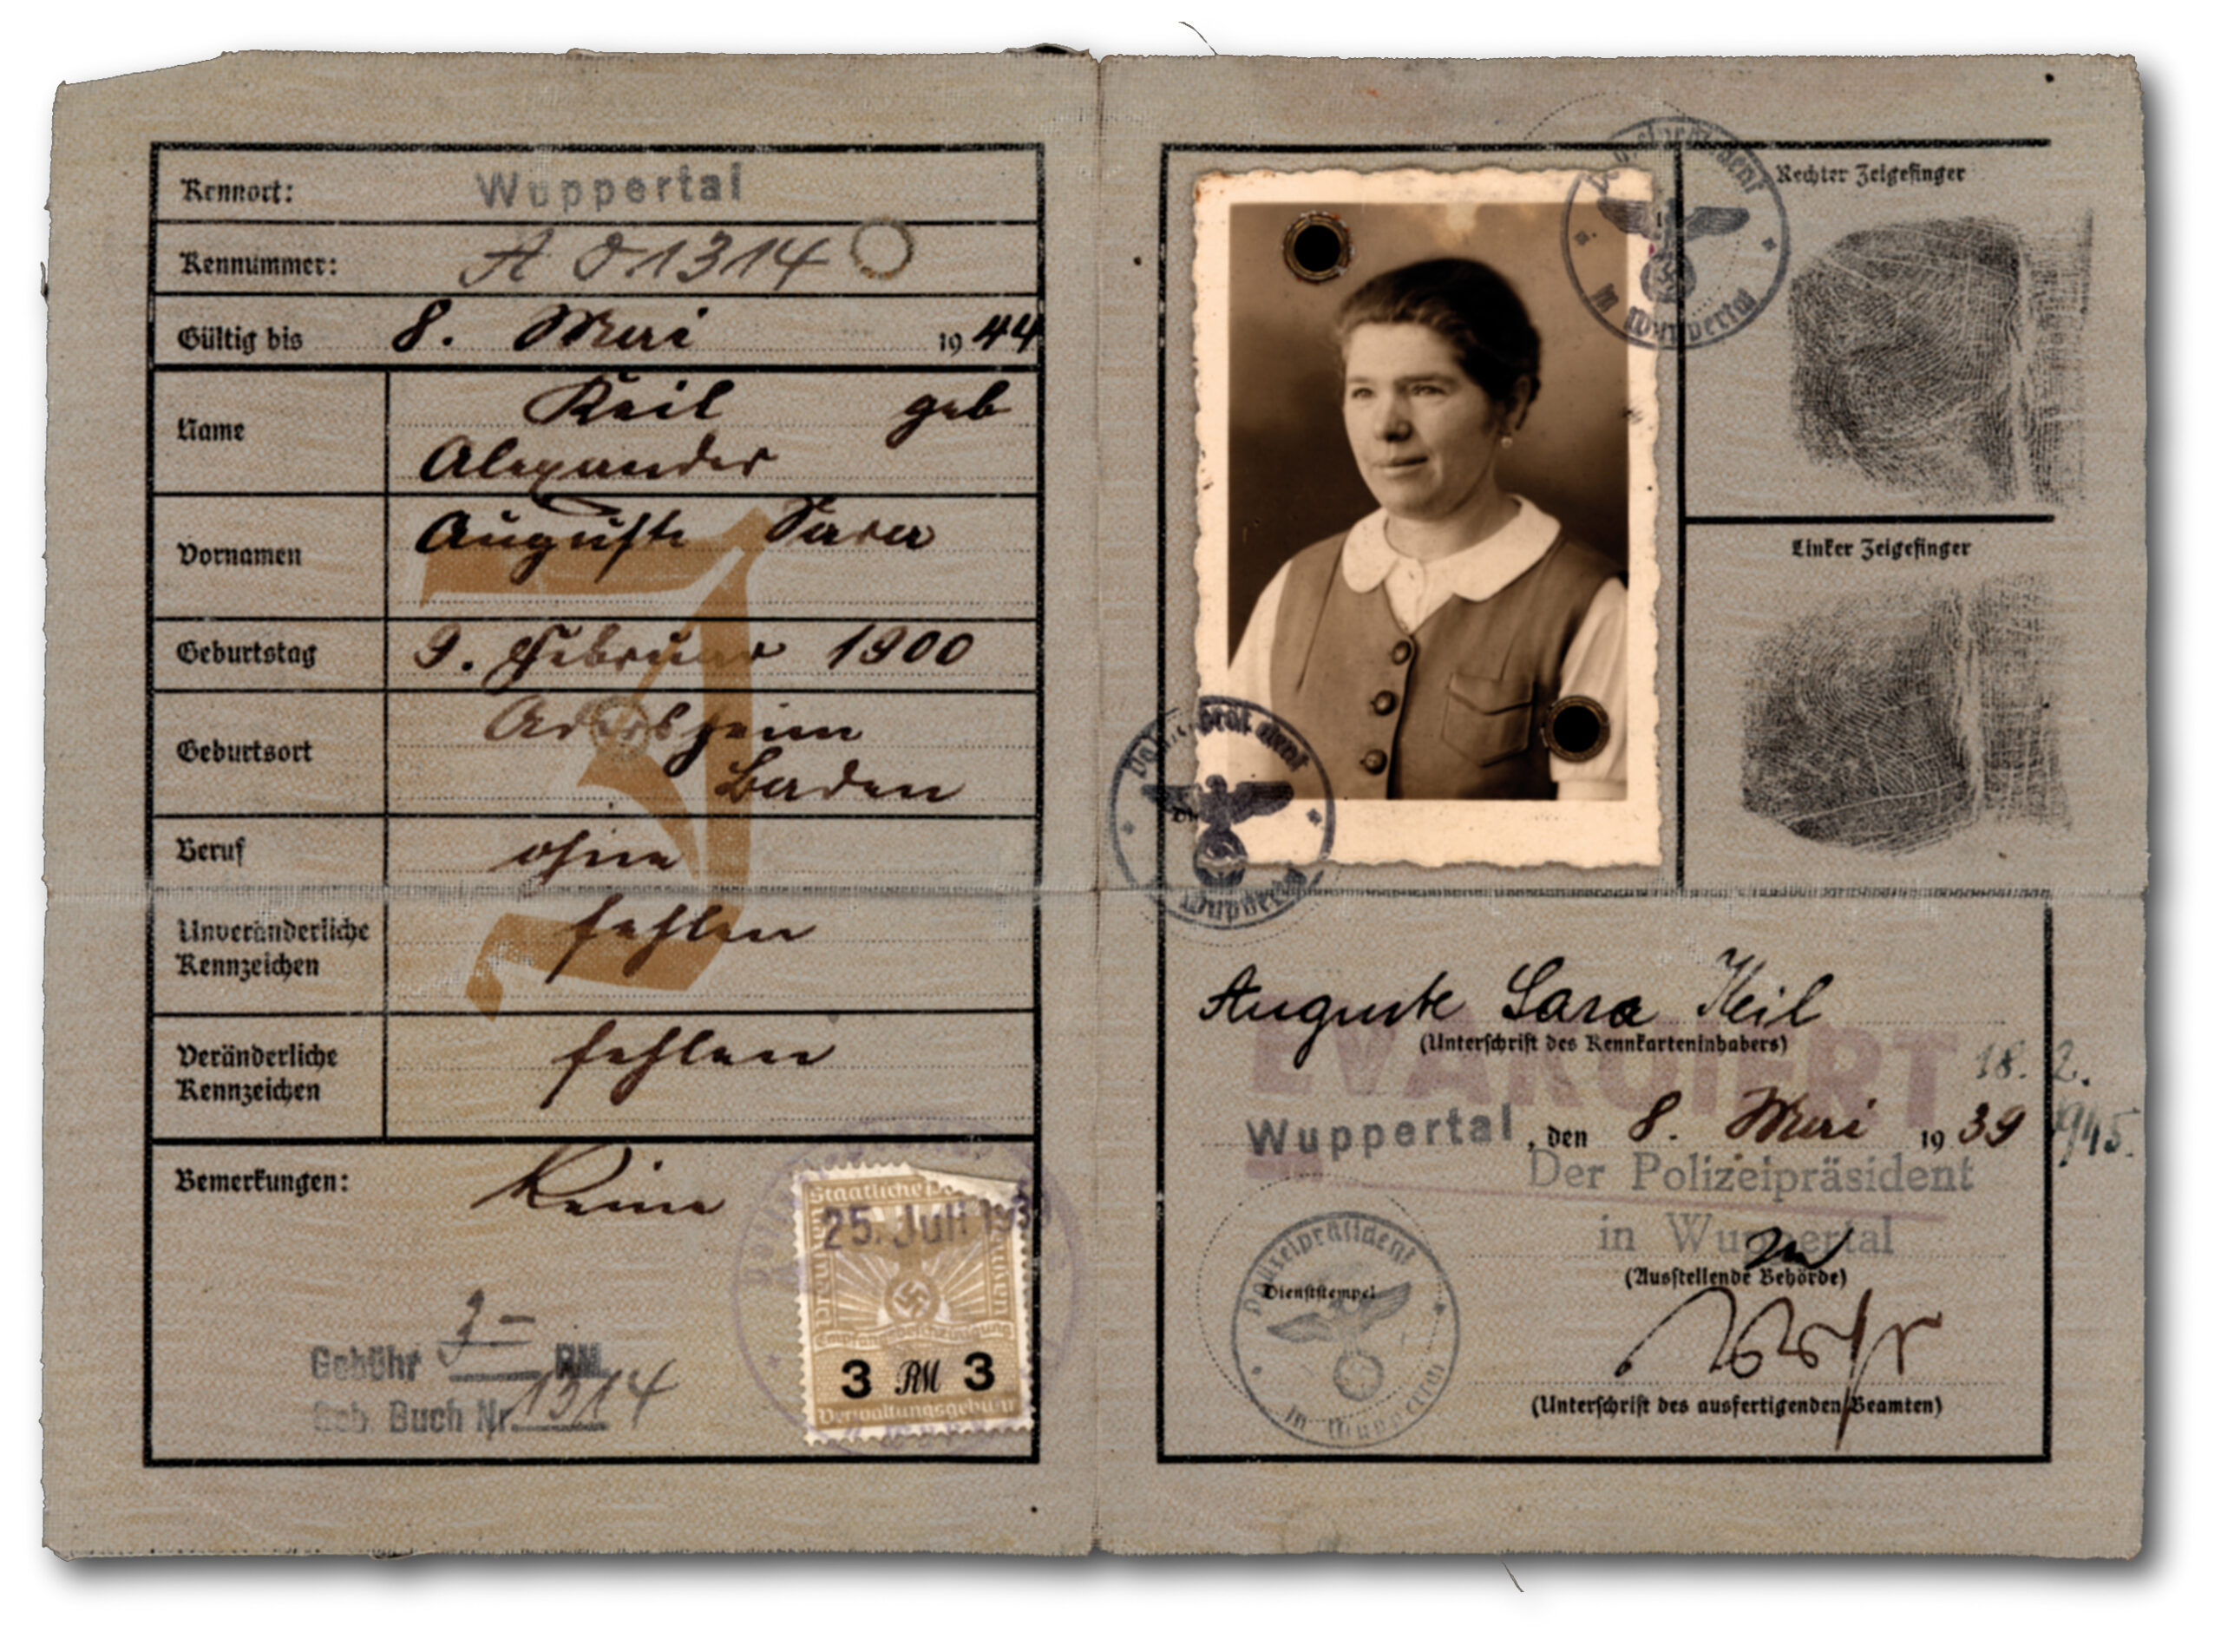 Kennort: Wuppertal
Kennummer: A 01314
Gültig bis 8. Mai 1944
Name Keil geb
Alexander
Vornamen Auguste Sara
Geburtstag 9. Februar 1900
Geburtsort Adelsheim
Baden
Beruf ohne
Unveränderliche
Kennzeichen fehlen
Veränderliche
Kennzeichen fehlen
Bemerkungen: Keine
J
Gebühr 3- RM.
Geb. Buch Nr. 1314
Staatliche
25. Juli 193
Empfangsbescheinigung
3 RM 3
Verwaltungsgebühr
Rechter Zeigefinger
Linker Zeigefinger
Polizeipräsident
in Wuppertal
Polizeipräsident
Wuppertal
Auguste Sara Keil
(Unterschrift des Kennkarteninhabers)
EVAKUIERT 18. 2.
1945.
Wuppertal, den 8. Mai 1939
Der Polizeipräsident
in Wuppertal
(Ausstellende Behörde)
Dienststempel
Polizeipräsident
in Wuppertal
(Unterschrift des ausfertigenden Beamten)